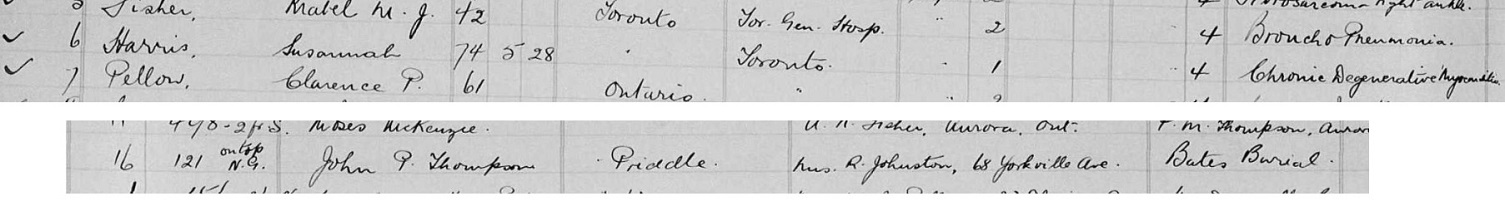 5 Fisher, Mabel M. J. 42 Toronto Tor. Gen. Hosp. " 2 4 right ankle.
6 Harris, Susannah 74 5 28 " Toronto. " 1 " 4 Broncho Pneumonia.
7 Pellow, Clarence P. 61 Ontario. " " 2 4 Chronic Degenerative Myocarditis
11 448-2frS. Moses McKenzie. A. N. Fisher, Aurora, Ont. P. M. Thompson, Auror
16 121 N.G. John P. Thompson Priddle. Mrs. R. Johnston, 68 Yorkville Ave. Bates Burial.